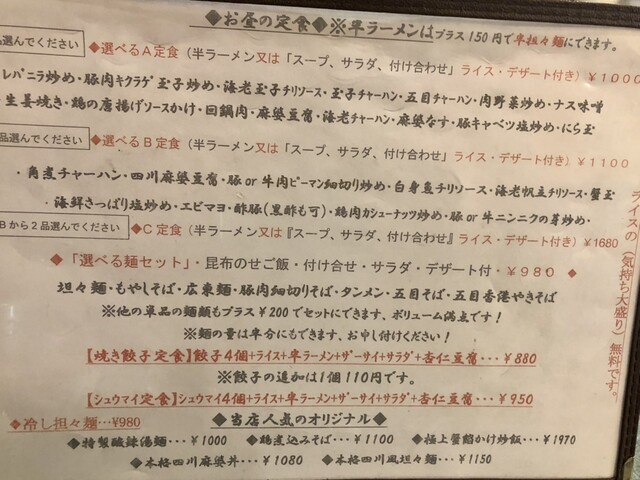 ◆お昼の定食◆※半ラーメンはプラス150円で半担々麺にできます。
品選んでください ◆選べるA定食(半ラーメン又は「スープ、サラダ、付け合わせ」ライス・デザート付き)¥1000
レバニラ炒め・豚肉キクラゲ玉子炒め・海老玉子チリソース・玉子チャーハン・五目チャーハン・肉野菜炒め・ナス味噌
・生姜焼き・鶏の唐揚げソースかけ・回鍋肉・麻婆豆腐・海老チャーハン・麻婆なす・豚キャベツ塩炒め・にら玉
品選んでください ◆選べるB定食(半ラーメン又は「スープ、サラダ、付け合わせ」ライス・デザート付き)¥1100
・角煮チャーハン・四川麻婆豆腐・豚or牛肉ピーマン細切り炒め・白身魚チリソース・海老帆立チリソース・蟹玉
・海鮮さっぱり塩炒め・エビマヨ・酢豚(黒酢も可)・鶏肉カシューナッツ炒め・豚or牛ニンニクの芽炒め・
Bから2品選んでください ◆C定食(半ラーメン又は『スープ、サラダ、付け合わせ』ライス・デザート付き)¥1680
◆「選べる麺セット」・昆布のせご飯・付け合せ・サラダ・デザート付・¥980 ◆
坦々麺・もやしそば・広東麺・豚肉細切りそば・タンメン・五目そば・五目香港やきそば
※他の単品の麺類もプラス¥200でセットにできます、ボリューム満点です!
※麺の量は半分にもできます、お申し付けください!
【焼き餃子定食】餃子4個+ライス+半ラーメン+ザーサイ+サラダ+杏仁豆腐・・・¥880
※餃子の追加は1個110円です。
【シュウマイ定食】シュウマイ4個+ライス+半ラーメン+ザーサイ+サラダ+杏仁豆腐・・・¥950
ライスの(気持ち大盛り)無料です。
◆冷し担々麺…¥980
◆当店人気のオリジナル◆
◆特製酸辣湯麺・・・¥1000 ◆鶏煮込みそば・・・¥1100 ◆極上蟹餡かけ炒飯・・・¥1970
◆本格四川麻婆丼・・・¥1080 ◆本格四川風坦々麺・・・¥1150